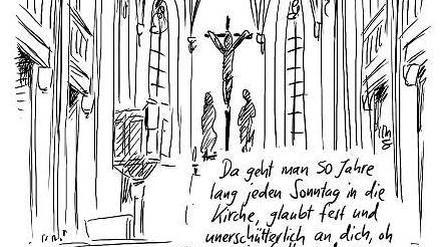 Da geht man 50 Jahre
lang jeden Sonntag in die
Kirche, glaubt fest und
unerschütterlich an dich, oh